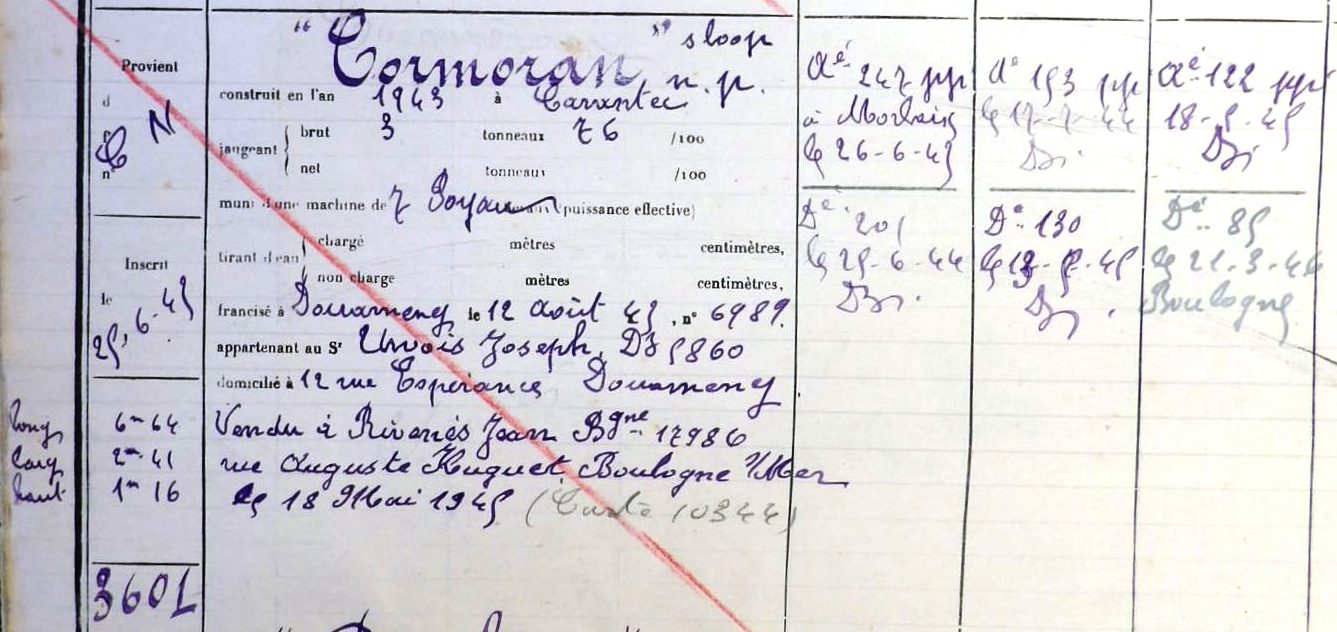 "Cormoran" sloop n.p.
Provient
d
C N
n°
construit en l'an 1943 à Carantec
jaugeant
brut 3 tonneaux 76 /100
net tonneaux /100
muni d'une machine de (puissance effective)
tirant d'eau
chargé mètres centimètres,
non chargé mètres centimètres,
Inscrit
le
25.6.43
francisé à Douarnenez le 12 Août 43, n° 6989.
appartenant au Sr Urvois Joseph, DZ 5860
domicilié à 12 rue Espérance Douarnenez
long 6m 64
larg 2m 41
haut 1m 16
Vendu à Jean Bgne 17986
rue Auguste Huguet, Boulogne s/Mer
le 18 Mai 1945 (Carte 10344)
3601
Aé 247 pp
à Morlaix
le 26-6-43
Dé 201
le 25-6-44
Dz.
Aé 193 pp
44
Dz.
Dé 130
Dz.
Aé 122 pp
18-5-45
Dz
Dé 85
le 21-3-46
Boulogne